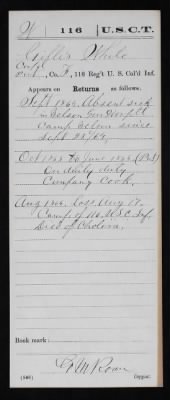 W 116 U.S.C.T.
White
Corpl, Co. F, 116 Reg't U. S. Col'd Inf.
Appears on Returns as follows:
Sept 1864, Absent sick
in Nelson Gen Hospl at
Camp Nelson since
Sept 22/64.
Oct 1865 to June 1866
On daily duty
Company Cook.
Aug 1866. Loss Aug 17.
Camp of 116 U.S.C. Inf.
Died of Cholera.
Book mark:
(546) Copyist.